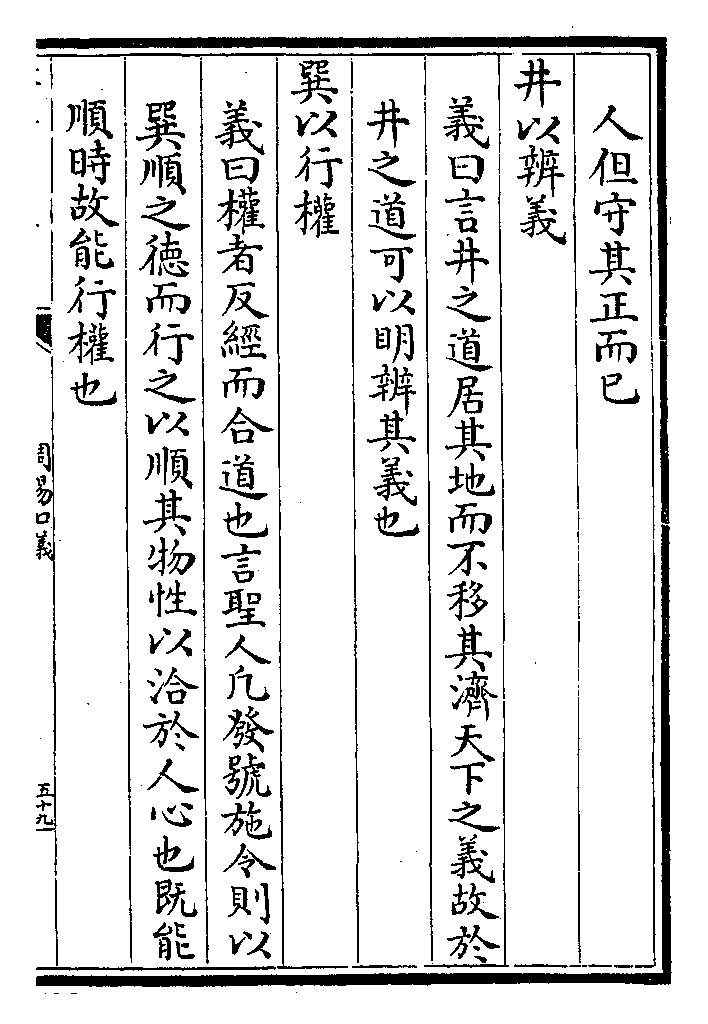 人但守其正而已
井以辨義
義曰言井之道居其地而不移其濟天下之義故於
井之道可以明辨其義也
巽以行權
義曰權者反經而合道也言聖人凡發號施令則以
巽順之徳而行之以順其物性以洽於人心也既能
順時故能行權也
周易口義
五十九